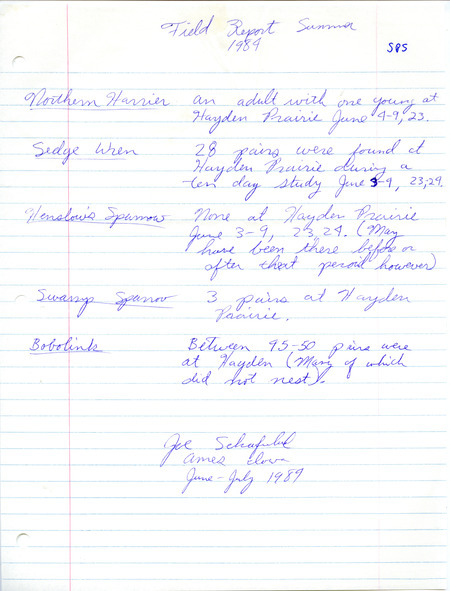 Field Report Summer
1989
SPS
Northern Harrier an adult with one young at
Hayden Prairie June 4-9, 23.
Sedge Wren 28 pairs were found at
Hayden Prairie during a
ten day study June 3-9, 23,24.
Henslow's Sparrow None at Hayden Prairie
June 3-9, 23, 24. (May
have been there before or
after that peroid however)
Swamp Sparrow 3 pairs at Hayden
Prairie.
Bobolinks Between 45-50 pairs were
at Hayden (Many of which
did not nest).
Joe
Ames Iowa
June-July 1989